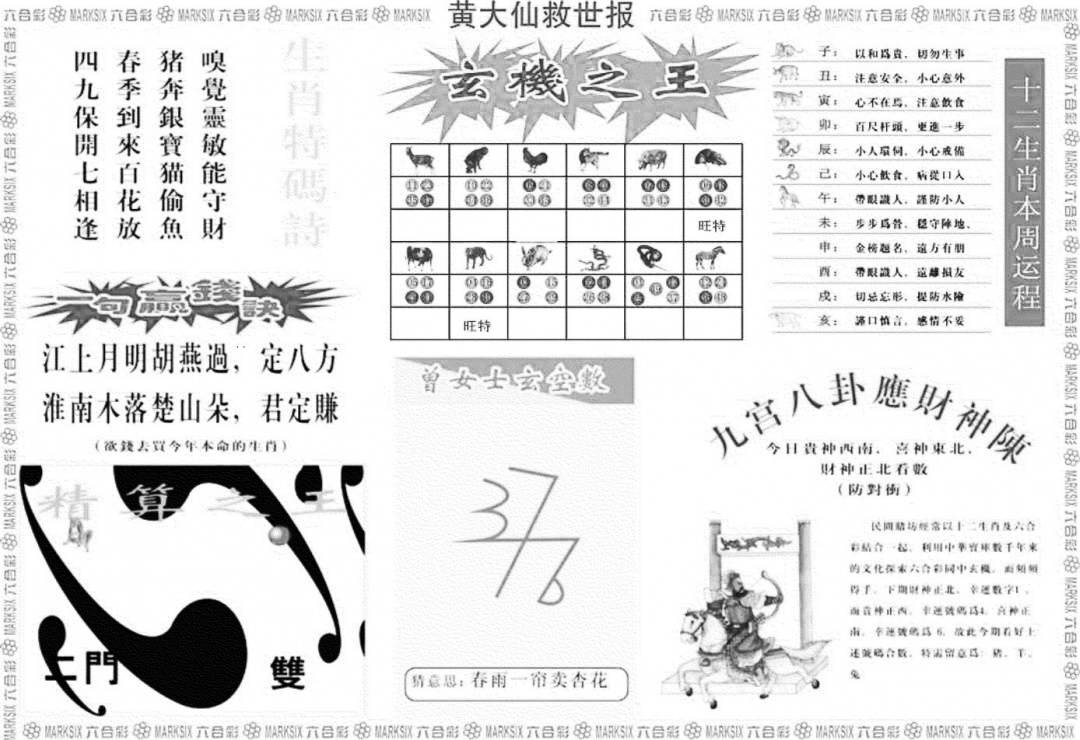 黄大仙救世报
MARKSIX 六合彩
生肖特碼詩
嗅覺靈敏能守財
猪奔銀寶猫偷魚
春季到來百花放
四九保開七相逢
一句贏錢訣
江上月明胡燕過，定八方
淮南木落楚山朵，君定賺
（欲錢去買今年本命的生肖）
精算之王
二門
雙
玄機之王
旺特
旺特
曾女士玄空數
猜意思：春雨一帘卖杏花
十二生肖本周运程
子：以和爲貴，切勿生事
丑：注意安全，小心意外
寅：心不在焉，注意飲食
卯：百尺杆頭，更進一步
辰：小人環伺，小心戒備
己：小心飲食，病從口入
午：帶眼識人，謹防小人
未：步步爲營，穩守陣地、
申：金榜题名，遠方有朋
酉：帶眼識人，遠離損友
戌：切忌忘形，提防水險
亥：謹口慎言，感情不妥
九宫八卦應財神陳
今日貴神西南，喜神東北，
財神正北看數
（防對衝）
民間賭坊經常以十二生肖及六合
彩結合一起，利用中華寶庫數千年來
的文化探索六合彩同中玄機，而頻頻
得手，下期財神正北，幸運數字1，
而貴神正西，幸運號碼爲4，喜神正
南，幸運號碼爲 6，故此今期看好上
述號碼合數，特需留意爲：猪、羊、
兔